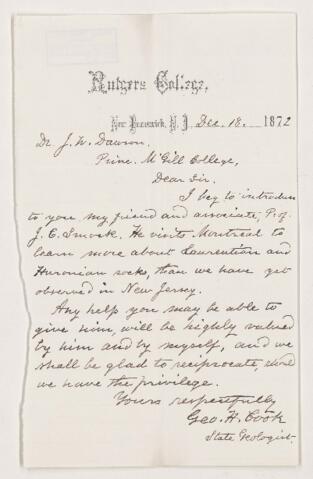 Rutgers College,
New Brunswick, N. J. Dec. 18. 1872
Dr. J. W. Dawson.
Princ. McGill College,
Dear Sir.
I beg to introduce
to you my friend and associate, Prof.
J. C. Smock. He visits Montreal to
learn more about Laurentian and
Huronian rocks, than we have yet
observed in New Jersey.
Any help you may be able to
give him, will be highly valued
by him and by myself, and we
shall be glad to reciprocate, were
we have the privilege.
Yours respectfully
Geo. H. Cook
State Geologist.